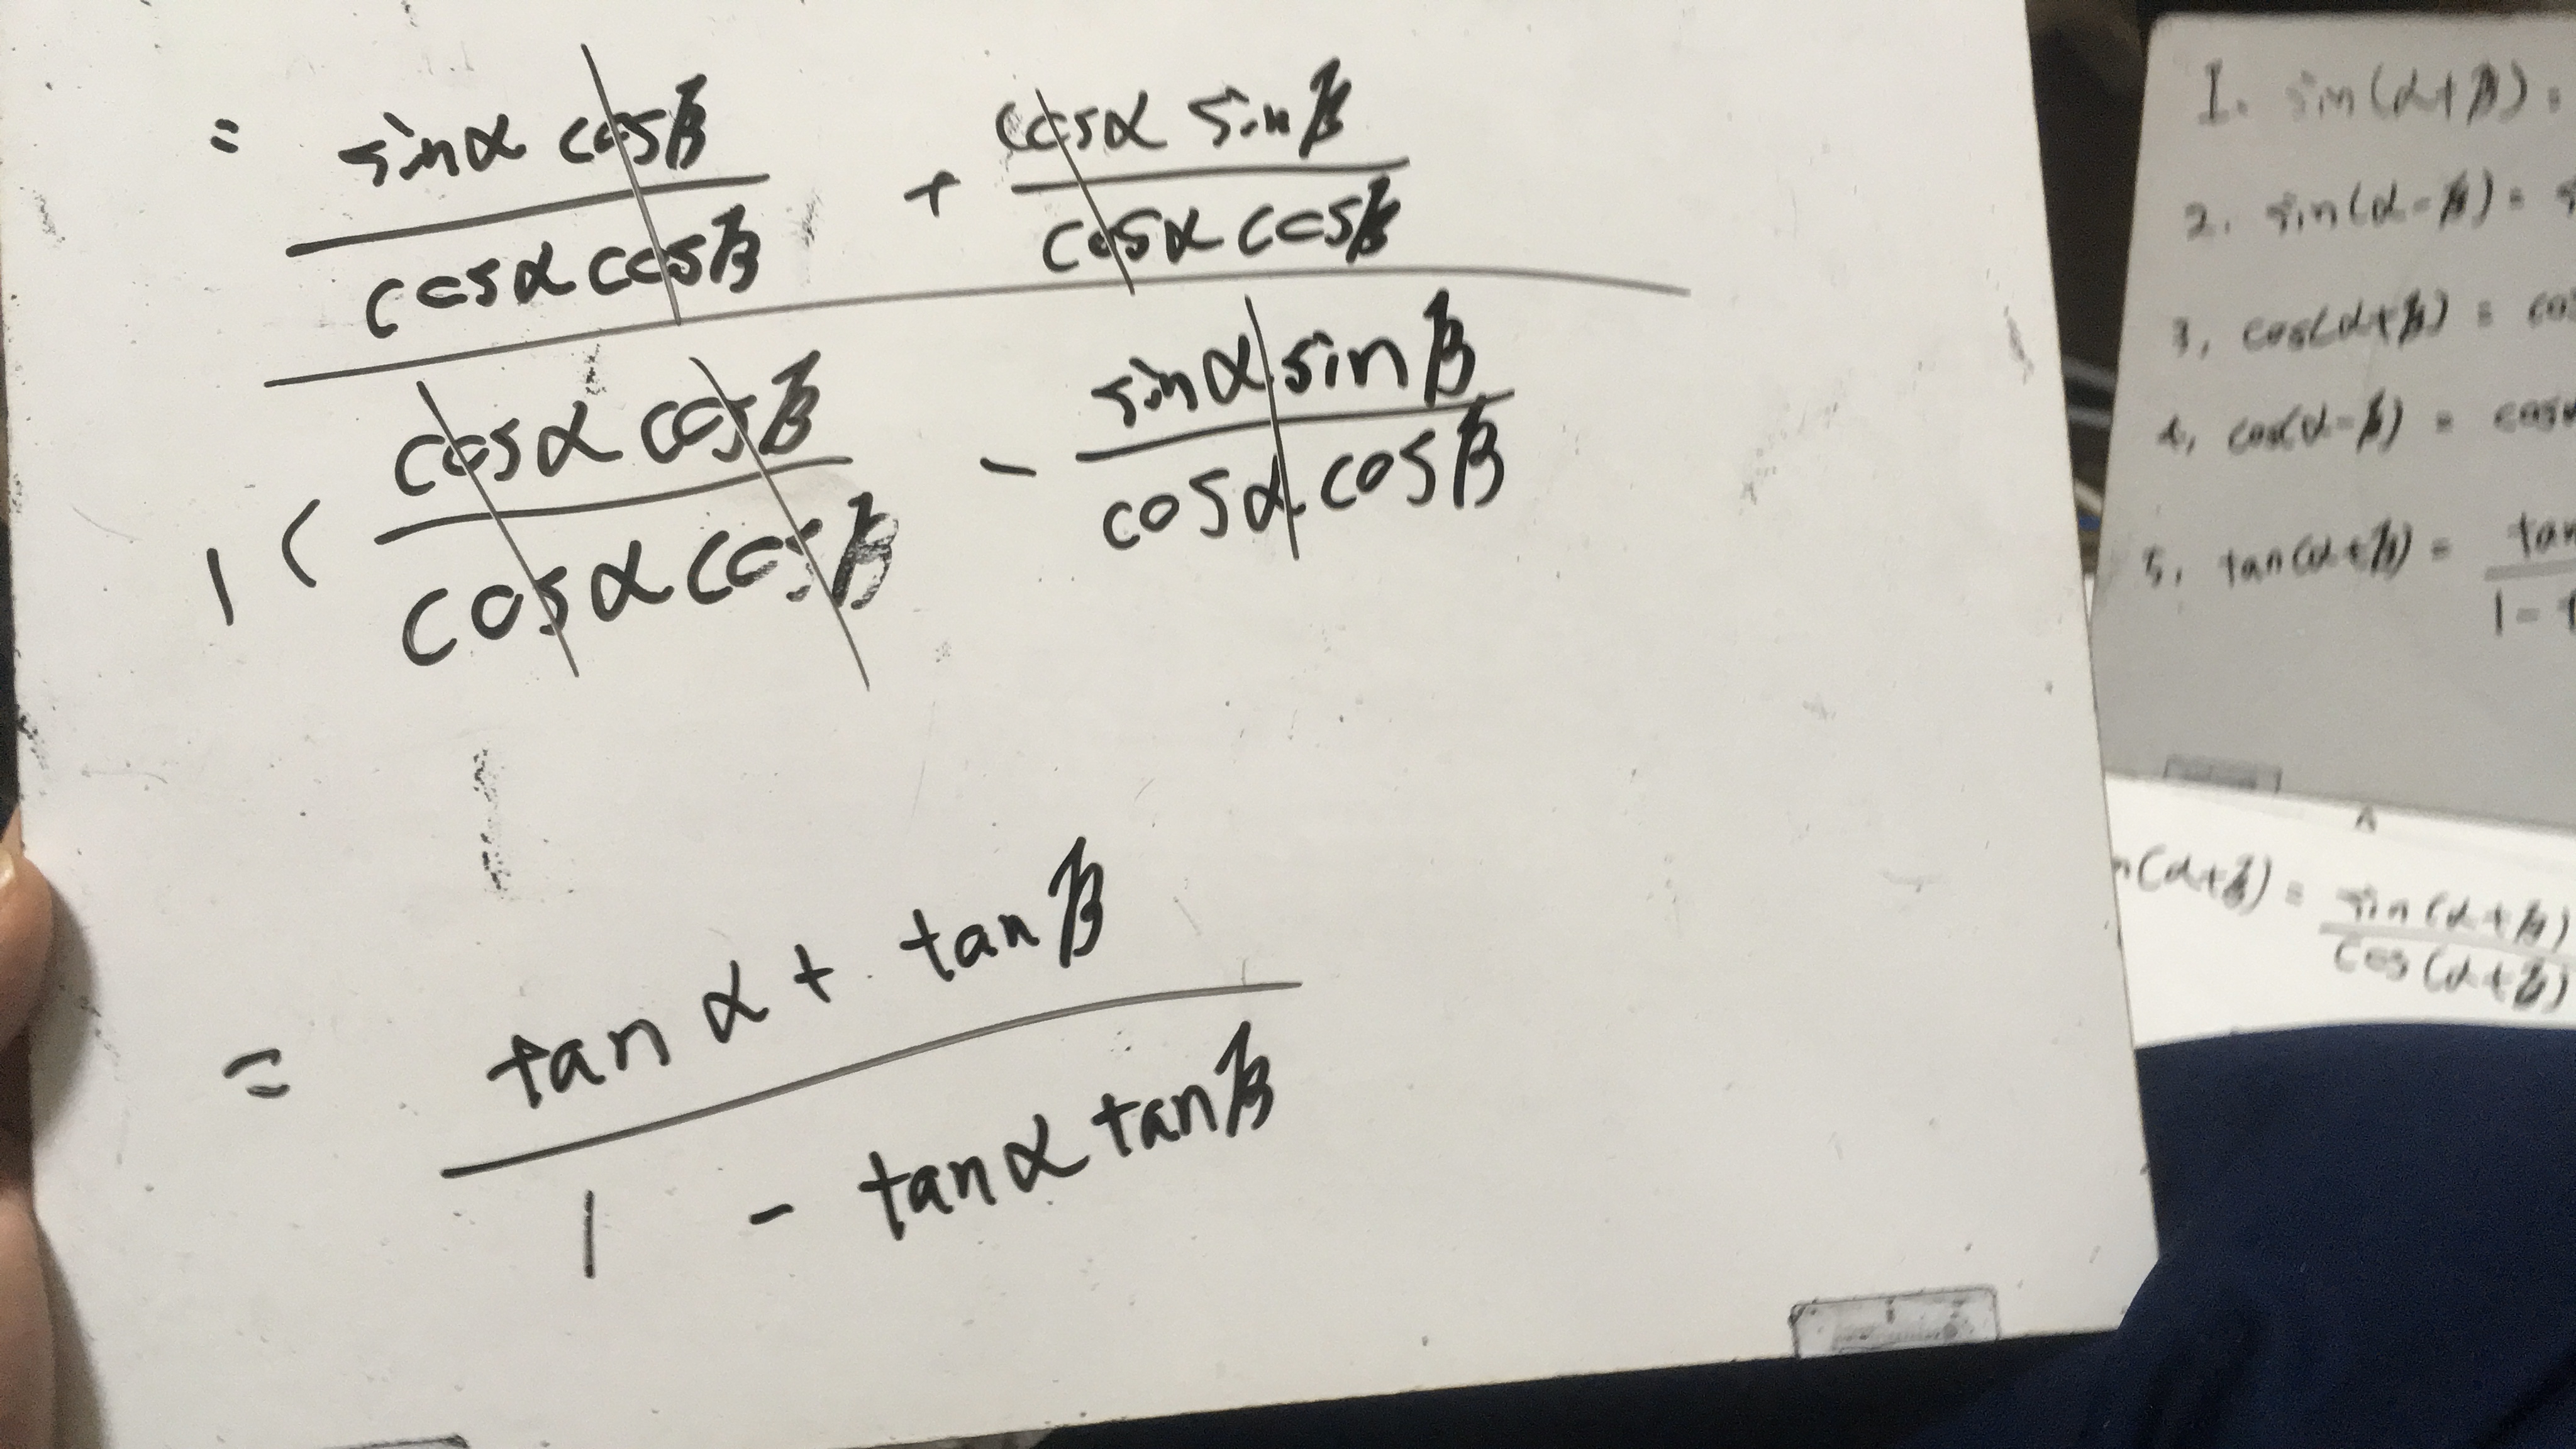 = sinα cosβ / cosα cosβ + cosα sinβ / cosα cosβ
1 ( cosα cosβ / cosα cosβ - sinα sinβ / cosα cosβ
= tan α + tan β
1 - tanα tanβ
1. sin(α+β) =
2. sin(α-β) = s
3, cos(α+β) = co
4, cos(α-β) = cosα
5, tan(α+β) = tan
1 - t
n(α+β) = sin(α+β)
cos(α+β)